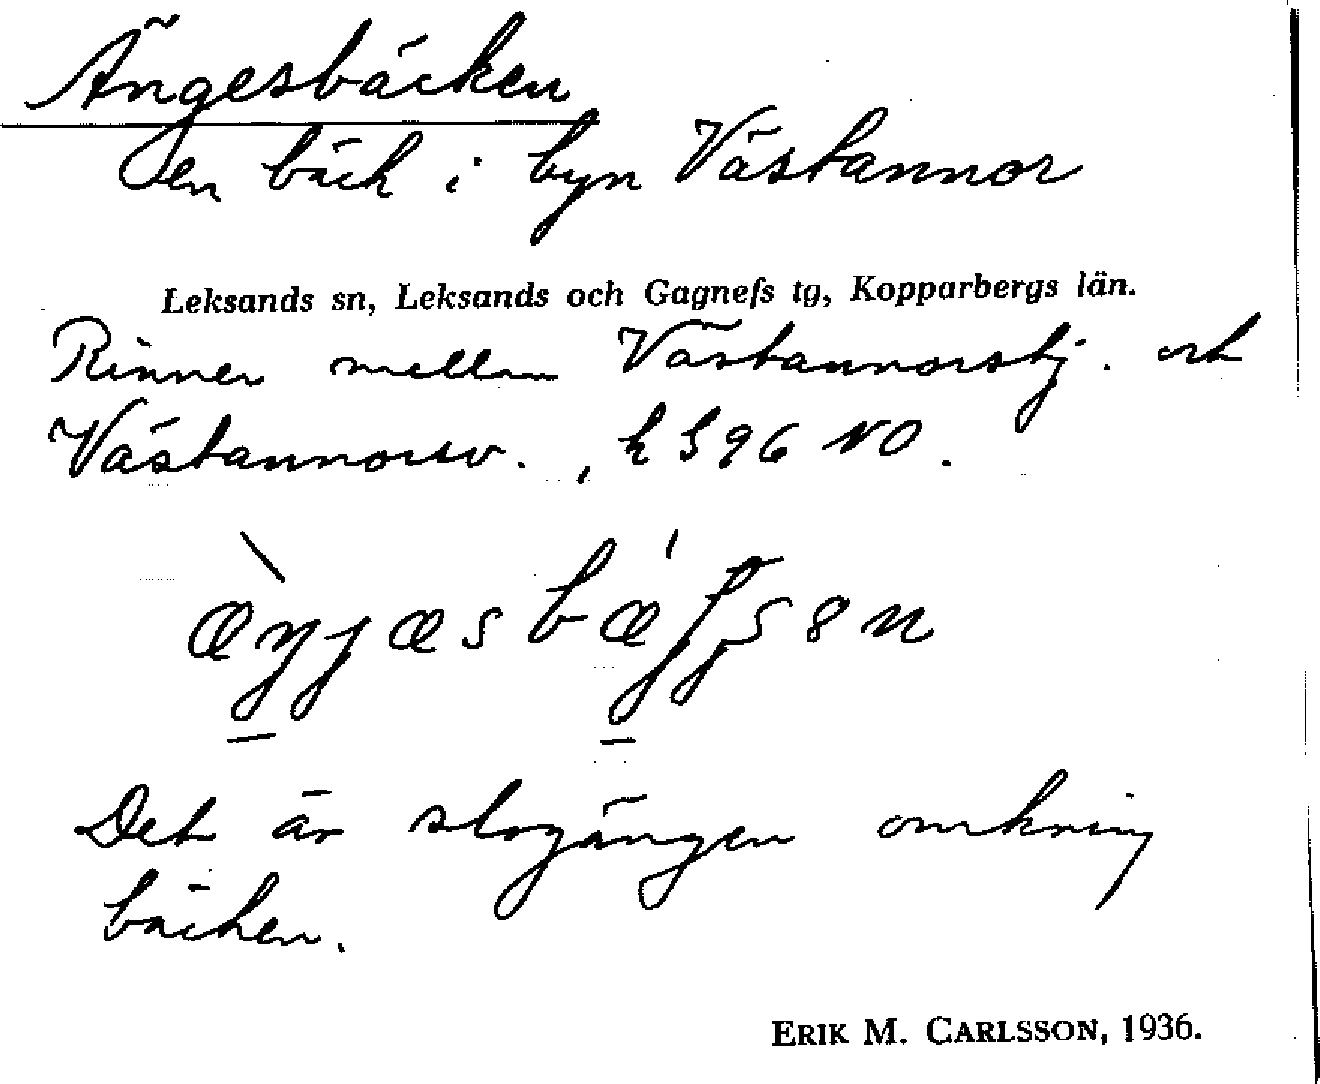 Ängesbäcken
en bäck i byn Västannor
Leksands sn, Leksands och Gagnefs tg, Kopparbergs län.
Rinner mellan Västannorstj. och
Västannorsv., k 596 NO.
Det är slogängen omkring
bäcken.
ERIK M. CARLSSON, 1936.